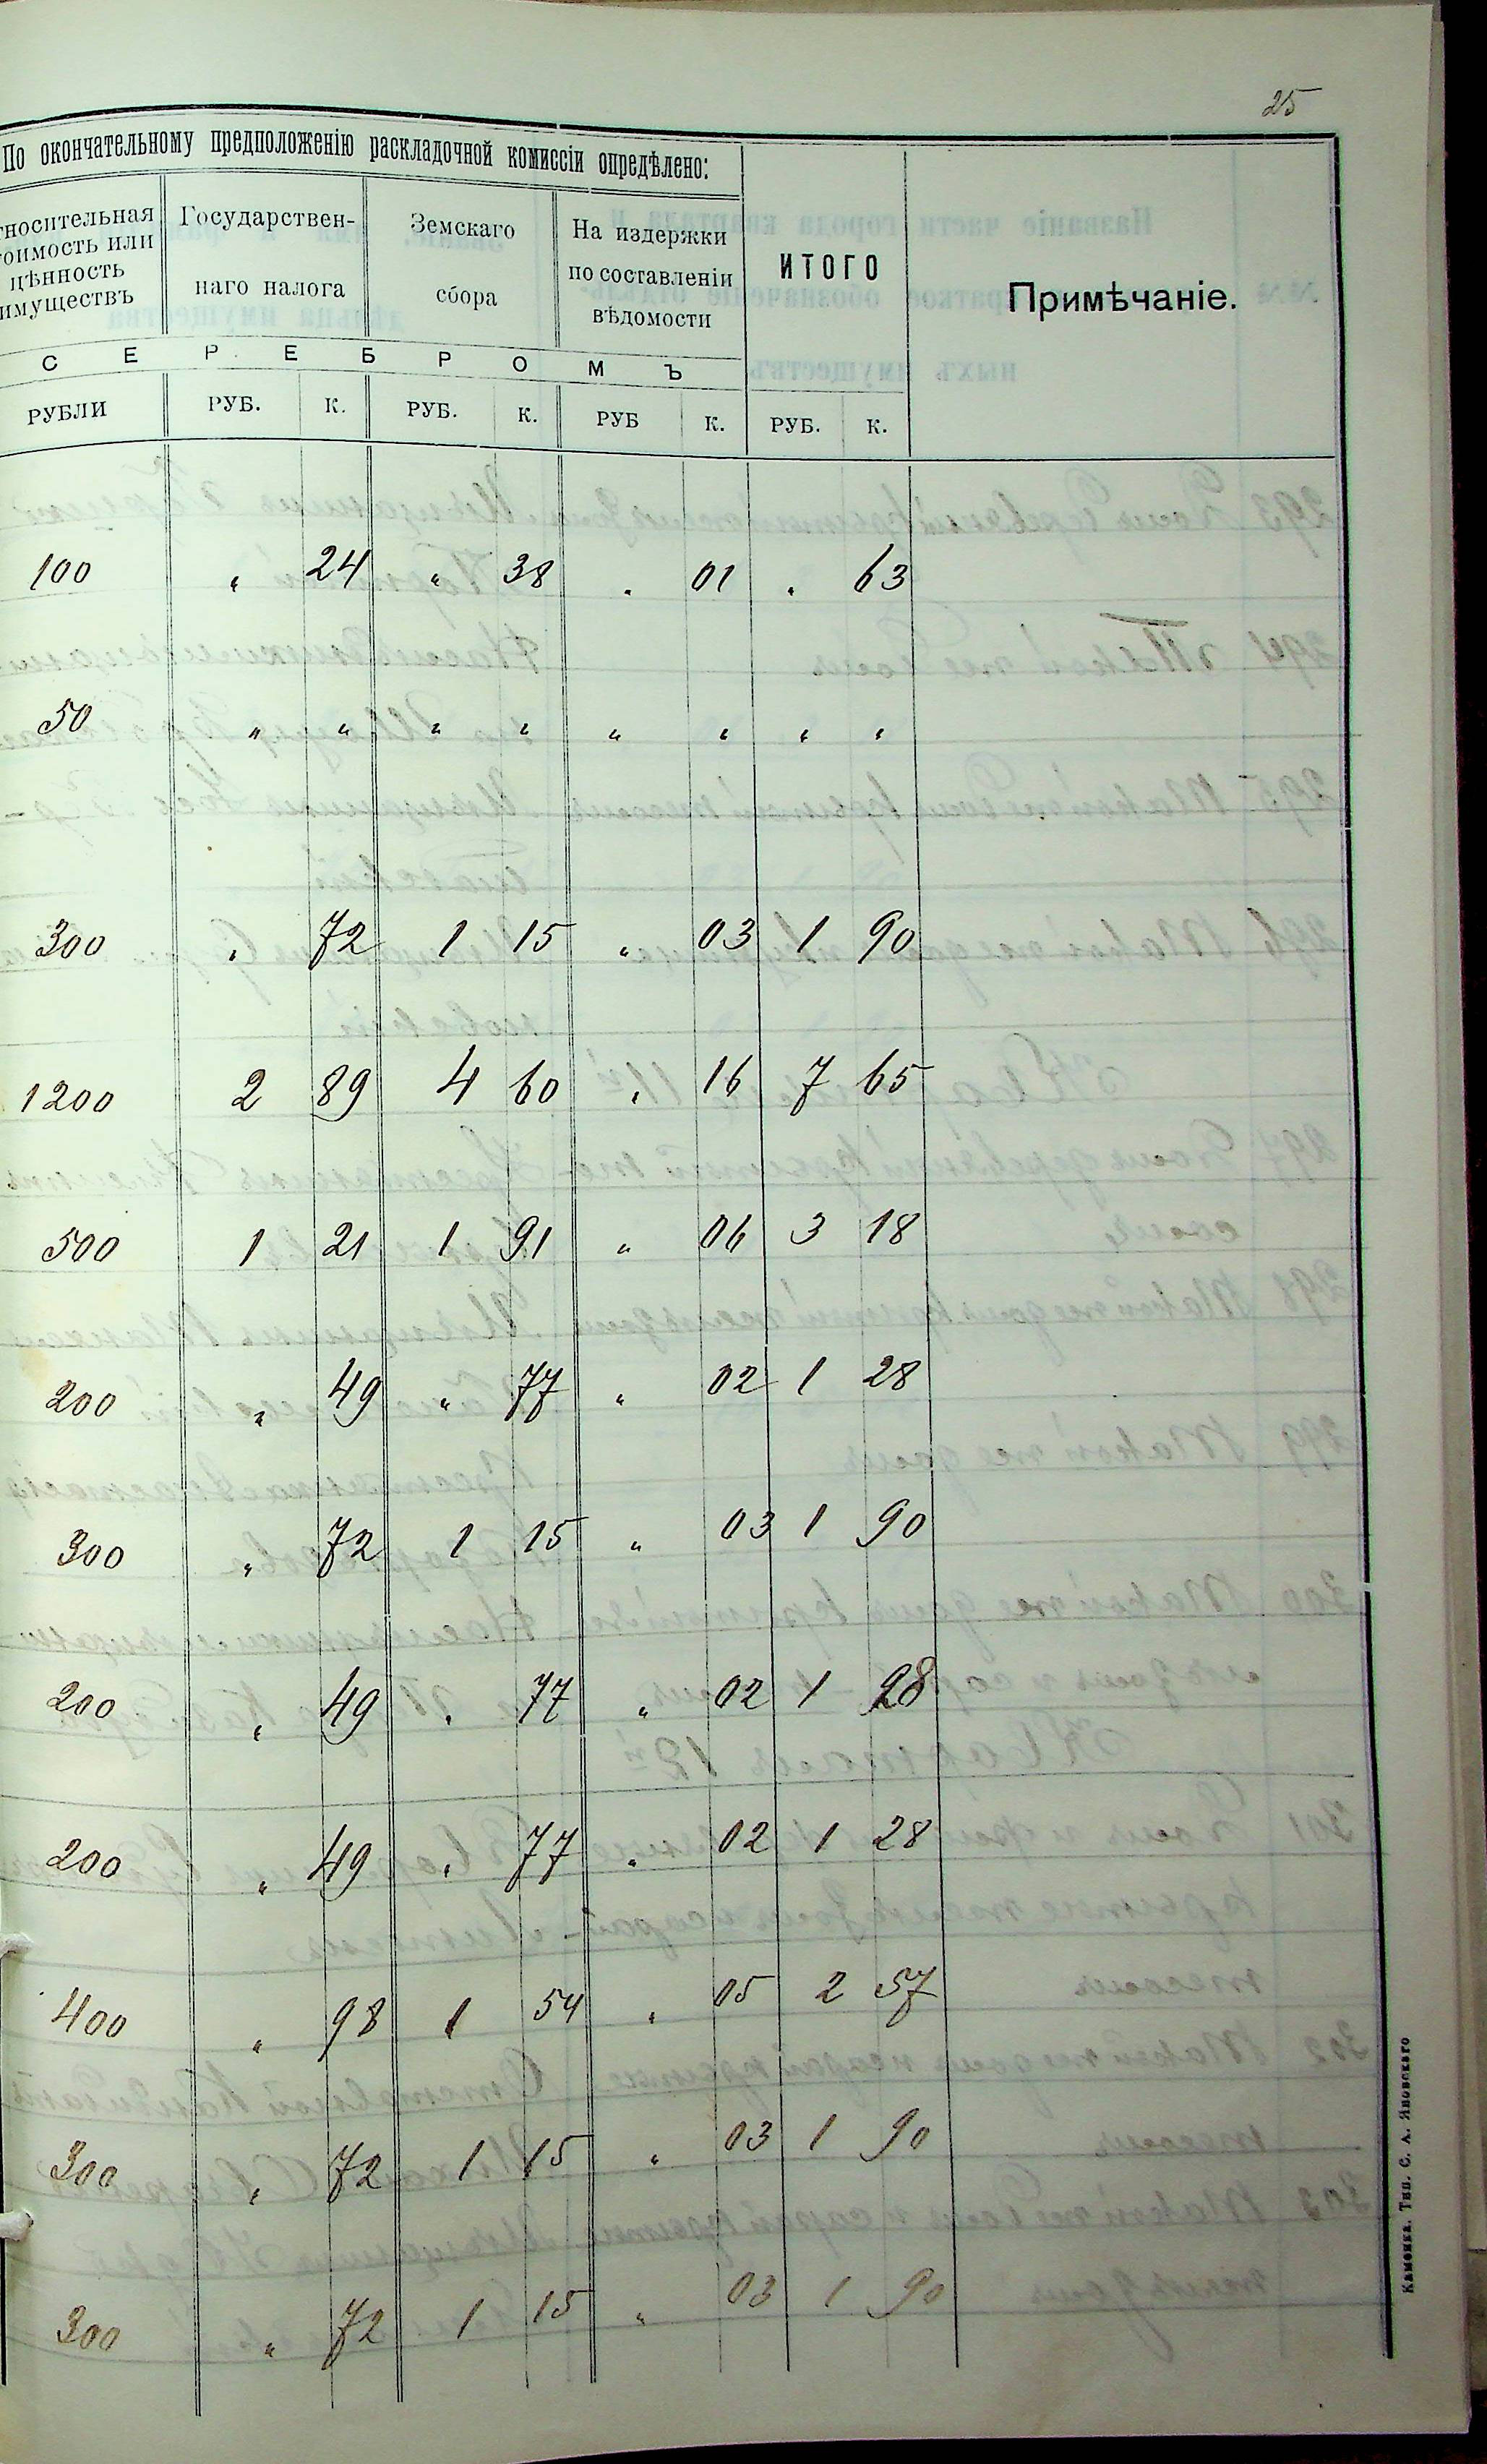 25
По окончательному предположенію раскладочной комиссіи опредѣлено:
тносительная
оимость или
цѣнность
имуществъ
Государствен-
наго налога
Земскаго
сбора
На издержки
по составленіи
вѣдомости
ИТОГО
Примѣчаніе.
С Е Р Е Б Р О М Ъ
РУБЛИ РУБ. К. РУБ. К. РУБ К. РУБ. К.
100 " 24 " 38 " 01 " 63
50 " " " " " " " "
300 " 72 1 15 " 03 1 90
1200 2 89 4 60 " 16 7 65
500 1 21 1 91 " 06 3 18
200 " 49 " 77 " 02 1 28
300 " 72 1 15 " 03 1 90
200 " 49 " 77 " 02 1 28
200 " 49 " 77 " 02 1 28
400 " 98 1 54 " 05 2 57
300 " 72 1 15 " 03 1 90
300 " 72 1 15 " 03 1 90
Каменка. Тип. С. А. Яновскаго